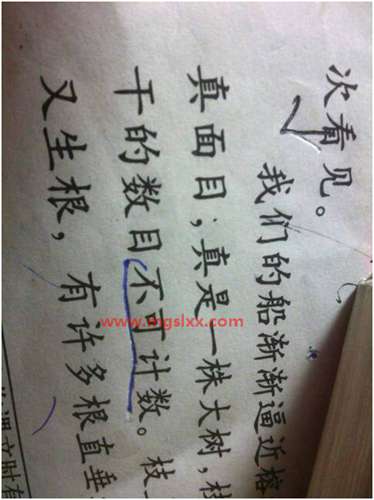 次看见。
我们的船渐渐逼近榕
真面目；真是一株大树，
干的数目不可计数。枝
又生根，有许多根直垂
课文时
www.mgslxx.com